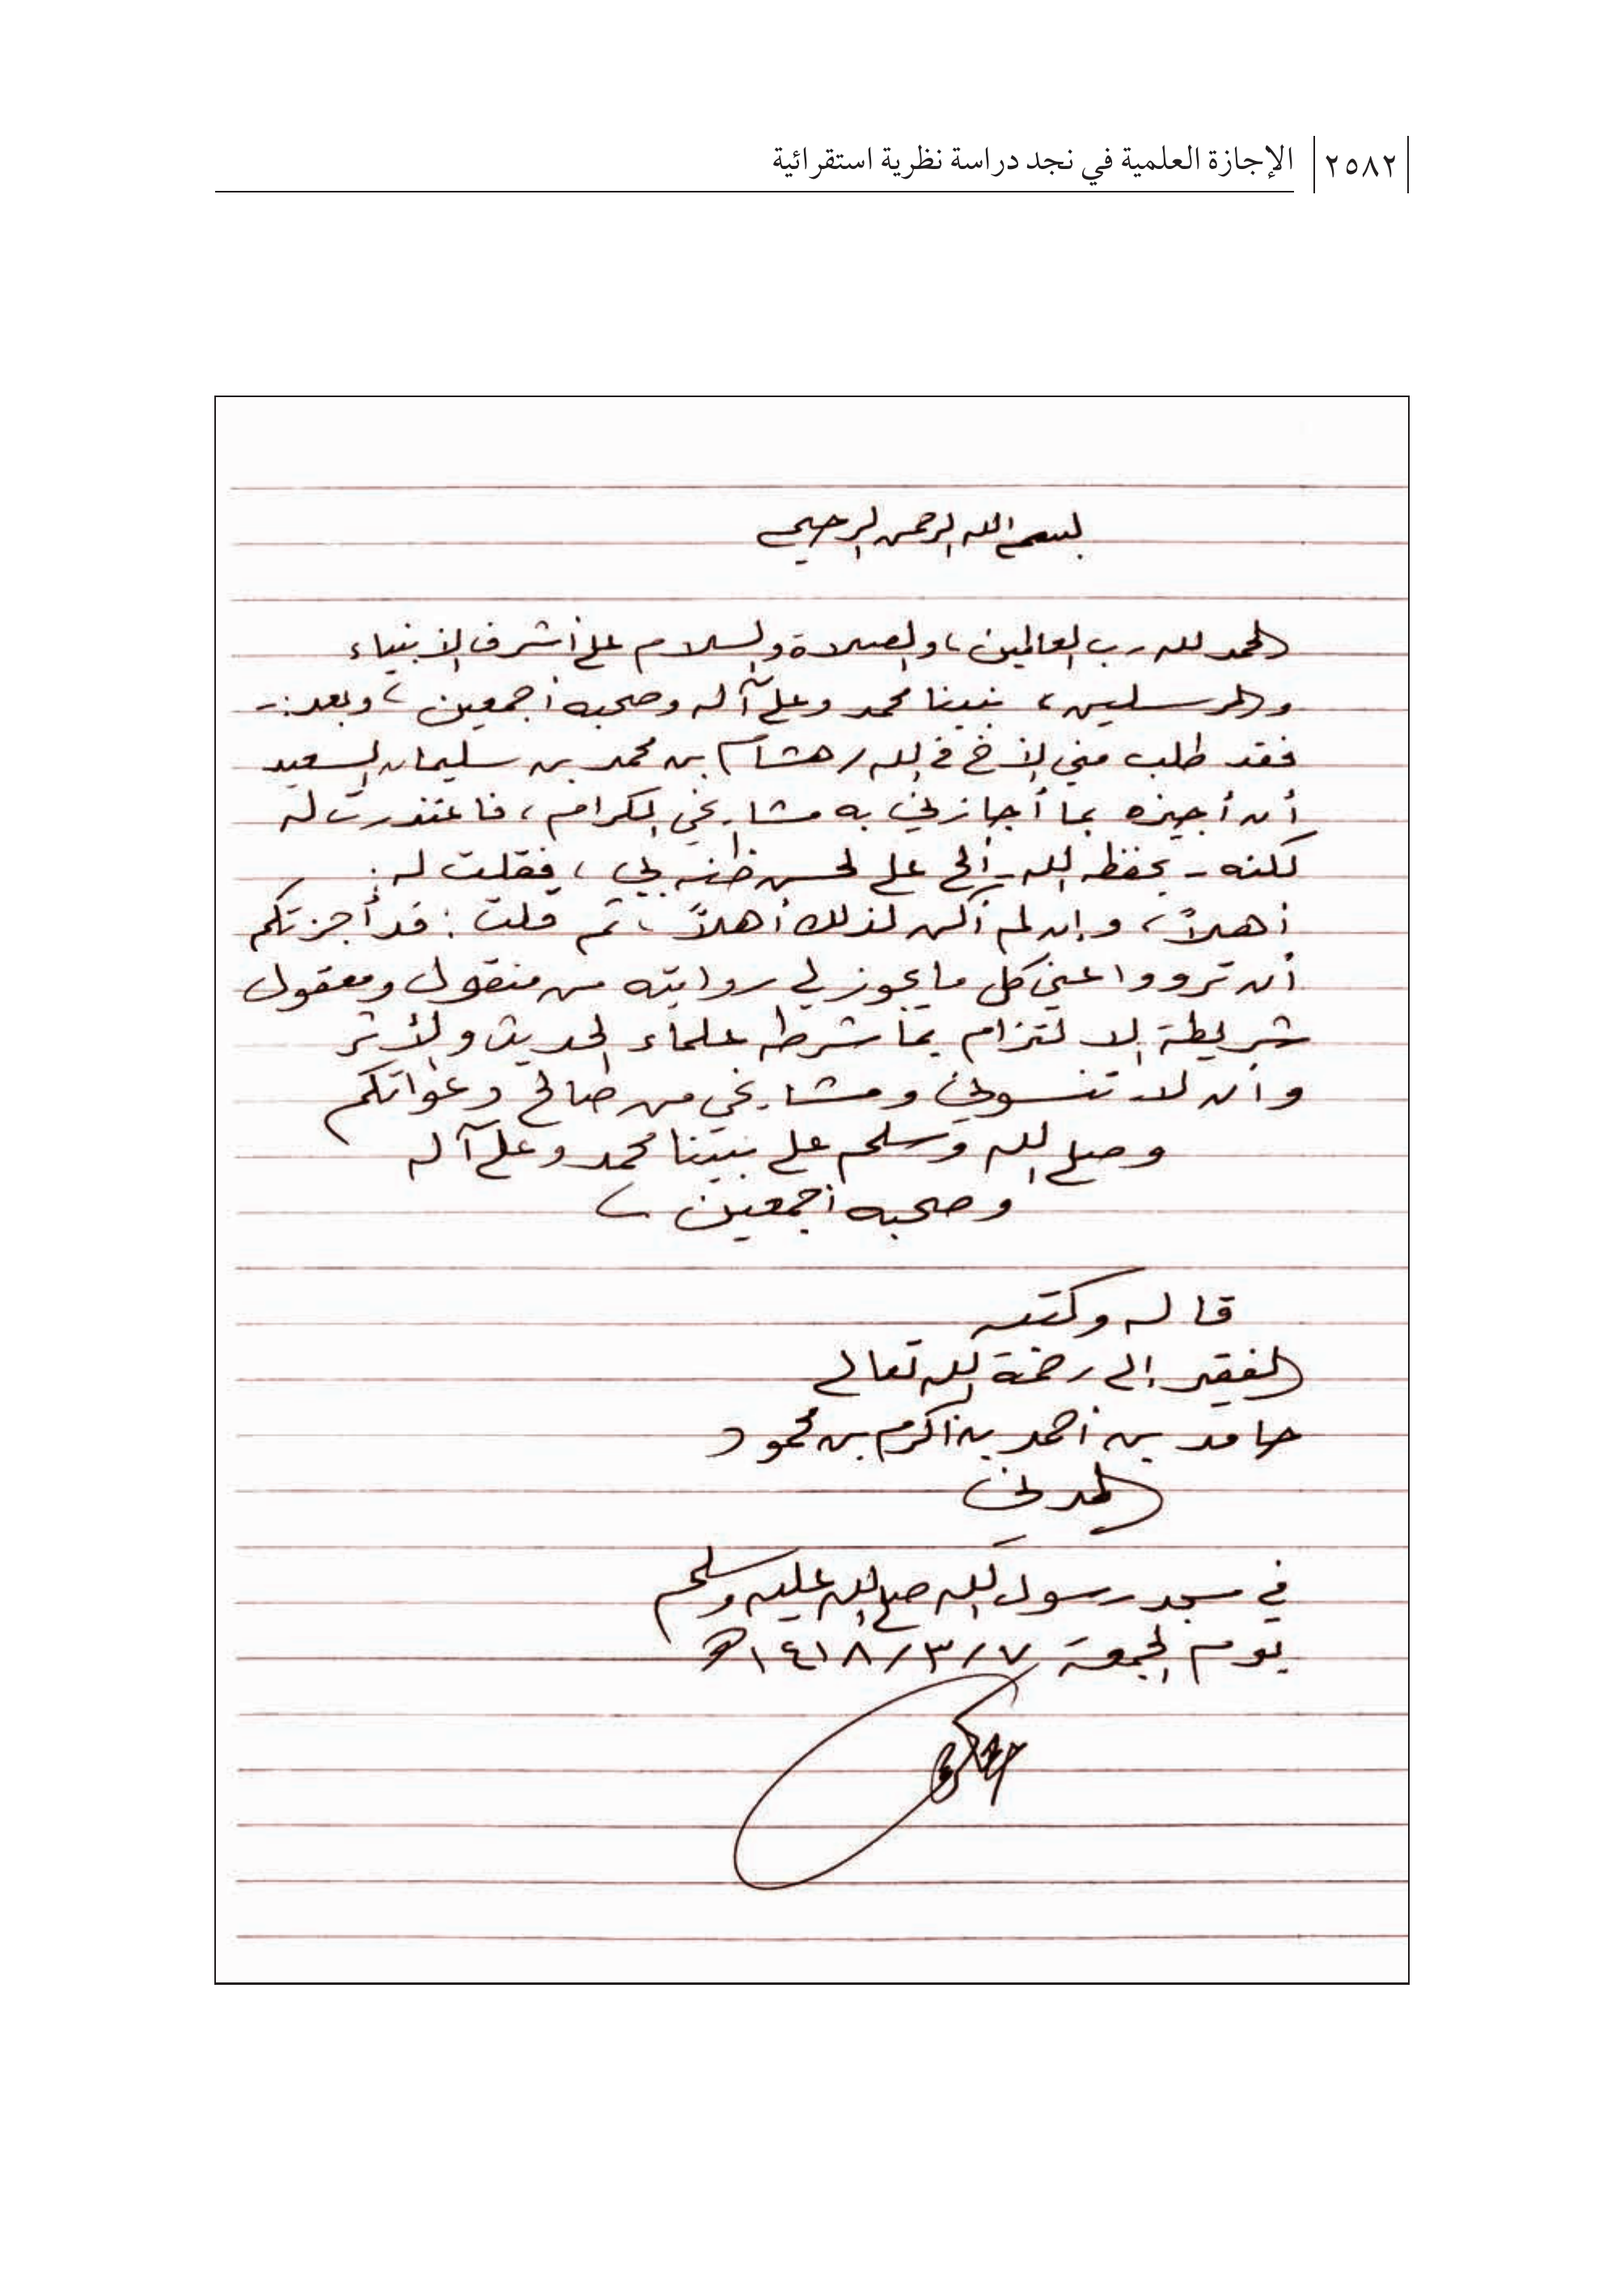 ٢٥٨٢ الإجازة العلمية في نجد دراسة نظرية استقرائية
بسم الله الرحمن الرحيم
الحمد لله رب العالمين، والصلاة والسلام على أشرف الأنبياء
والمرسلين، نبينا محمد وعلى آله وصحبه أجمعين، وبعد:-
فقد طلب مني الأخ في الله / هشام بن محمد بن سليمان السعيد
أن أجيزه بما أجازني به مشايخي الكرام، فاعتذرت له
لكنه - يحفظه الله - ألح علي لحسن ظنه بي، فقلت له:
أهلاً، وإن لم أكن لذلك أهلاً، ثم قلت: قد أجزتكم
أن ترووا عني كل ما يجوز لي روايته من منقول ومعقول
شريطة الالتزام بما شرطه علماء الحديث والأثر
وأن لا تنسوني ومشايخي من صالح دعواتكم
وصلى الله وسلم على نبينا محمد وعلى آله
وصحبه أجمعين،
قاله وكتبه
الفقير إلى رحمة الله تعالى
حامد بن أحمد بن أكرم بن محمود
المدني
في مسجد رسول الله صلى الله عليه وسلم
يوم الجمعة ٧/٣/١٤١٨هـ